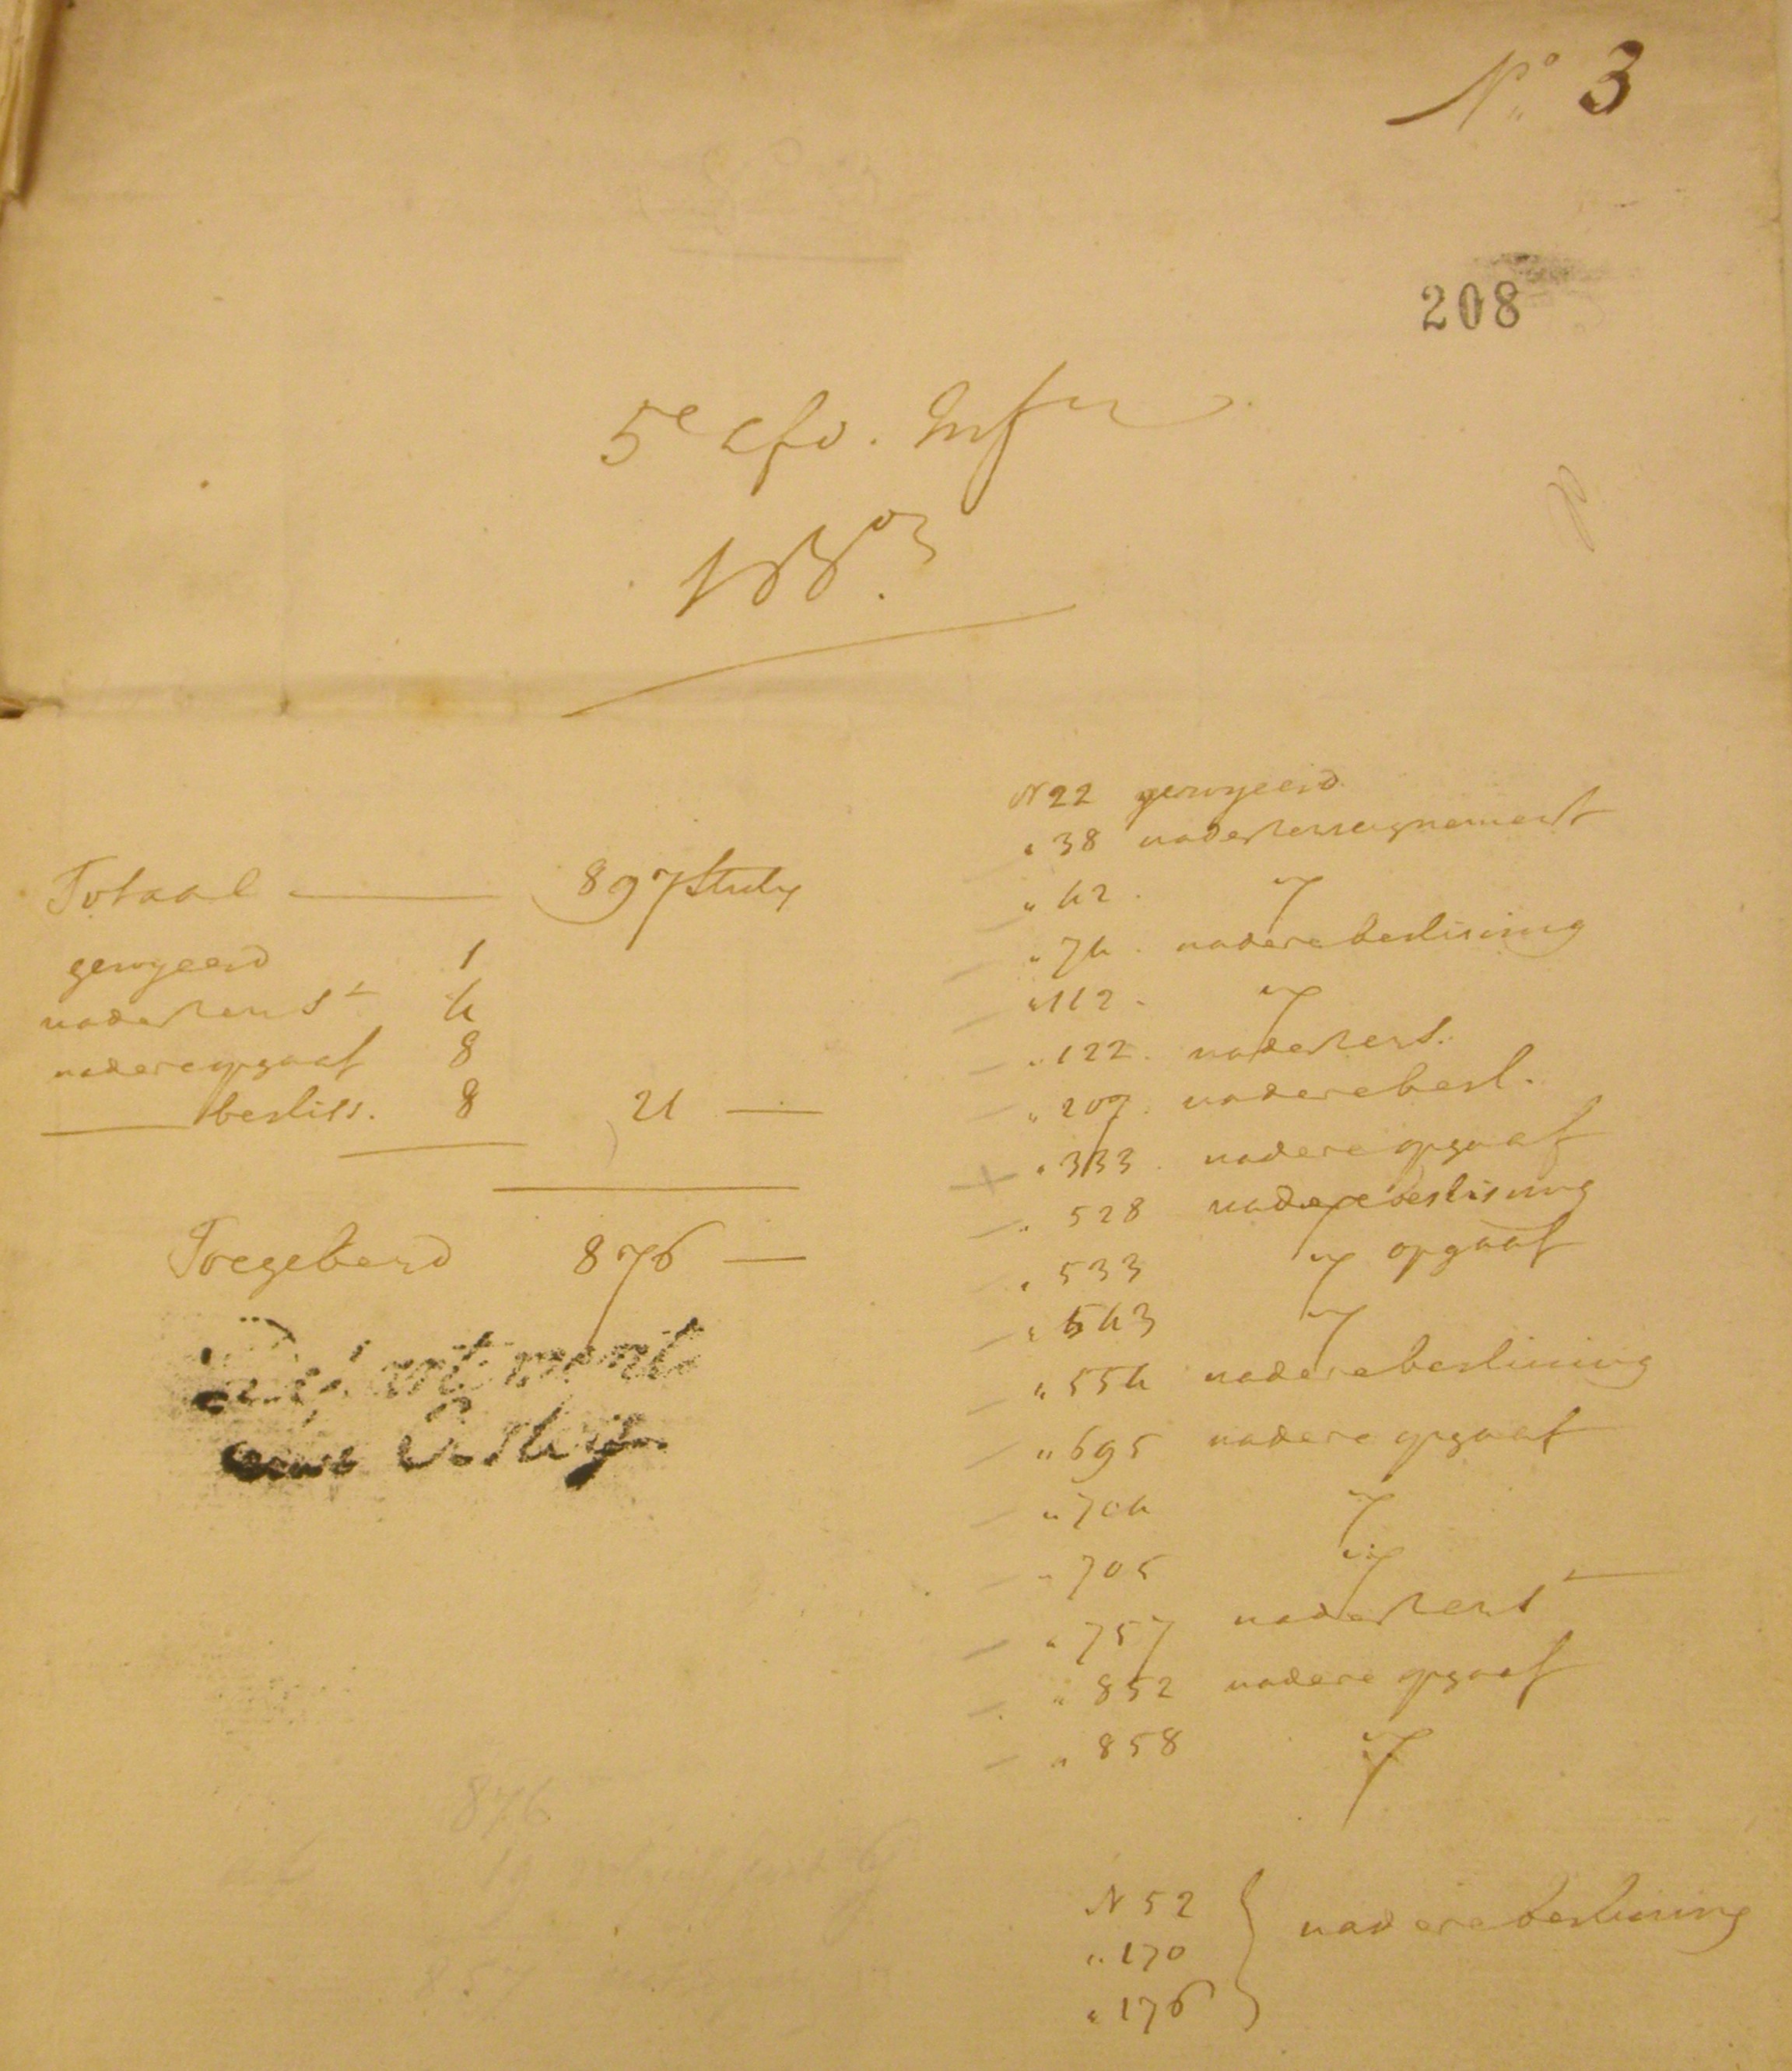 N.° 3
208
5e afd. Infie
Totaal — 897 stuks
geroyeerd 1
nader rens t 4
nadere opgaaf 8
— besliss. 8 21 —
Toegekend 876 —
N 22 geroyeerd
" 38 nader renseignement
" 42 . "
" 74 . nadere beslissing
" 112 . "
" 122 . nader rens.
" 209 . nadere besl.
" 333 . nadere opgaaf
" 528 nadere beslissing
" 533 " opgaaf
" 543 "
" 554 nadere beslissing
" 695 nadere opgaaf
" 704 "
" 705 "
" 757 nader rens t
" 852 nadere opgaaf
" 858 "
876
N 52
" 170 nadere beslissing
" 176